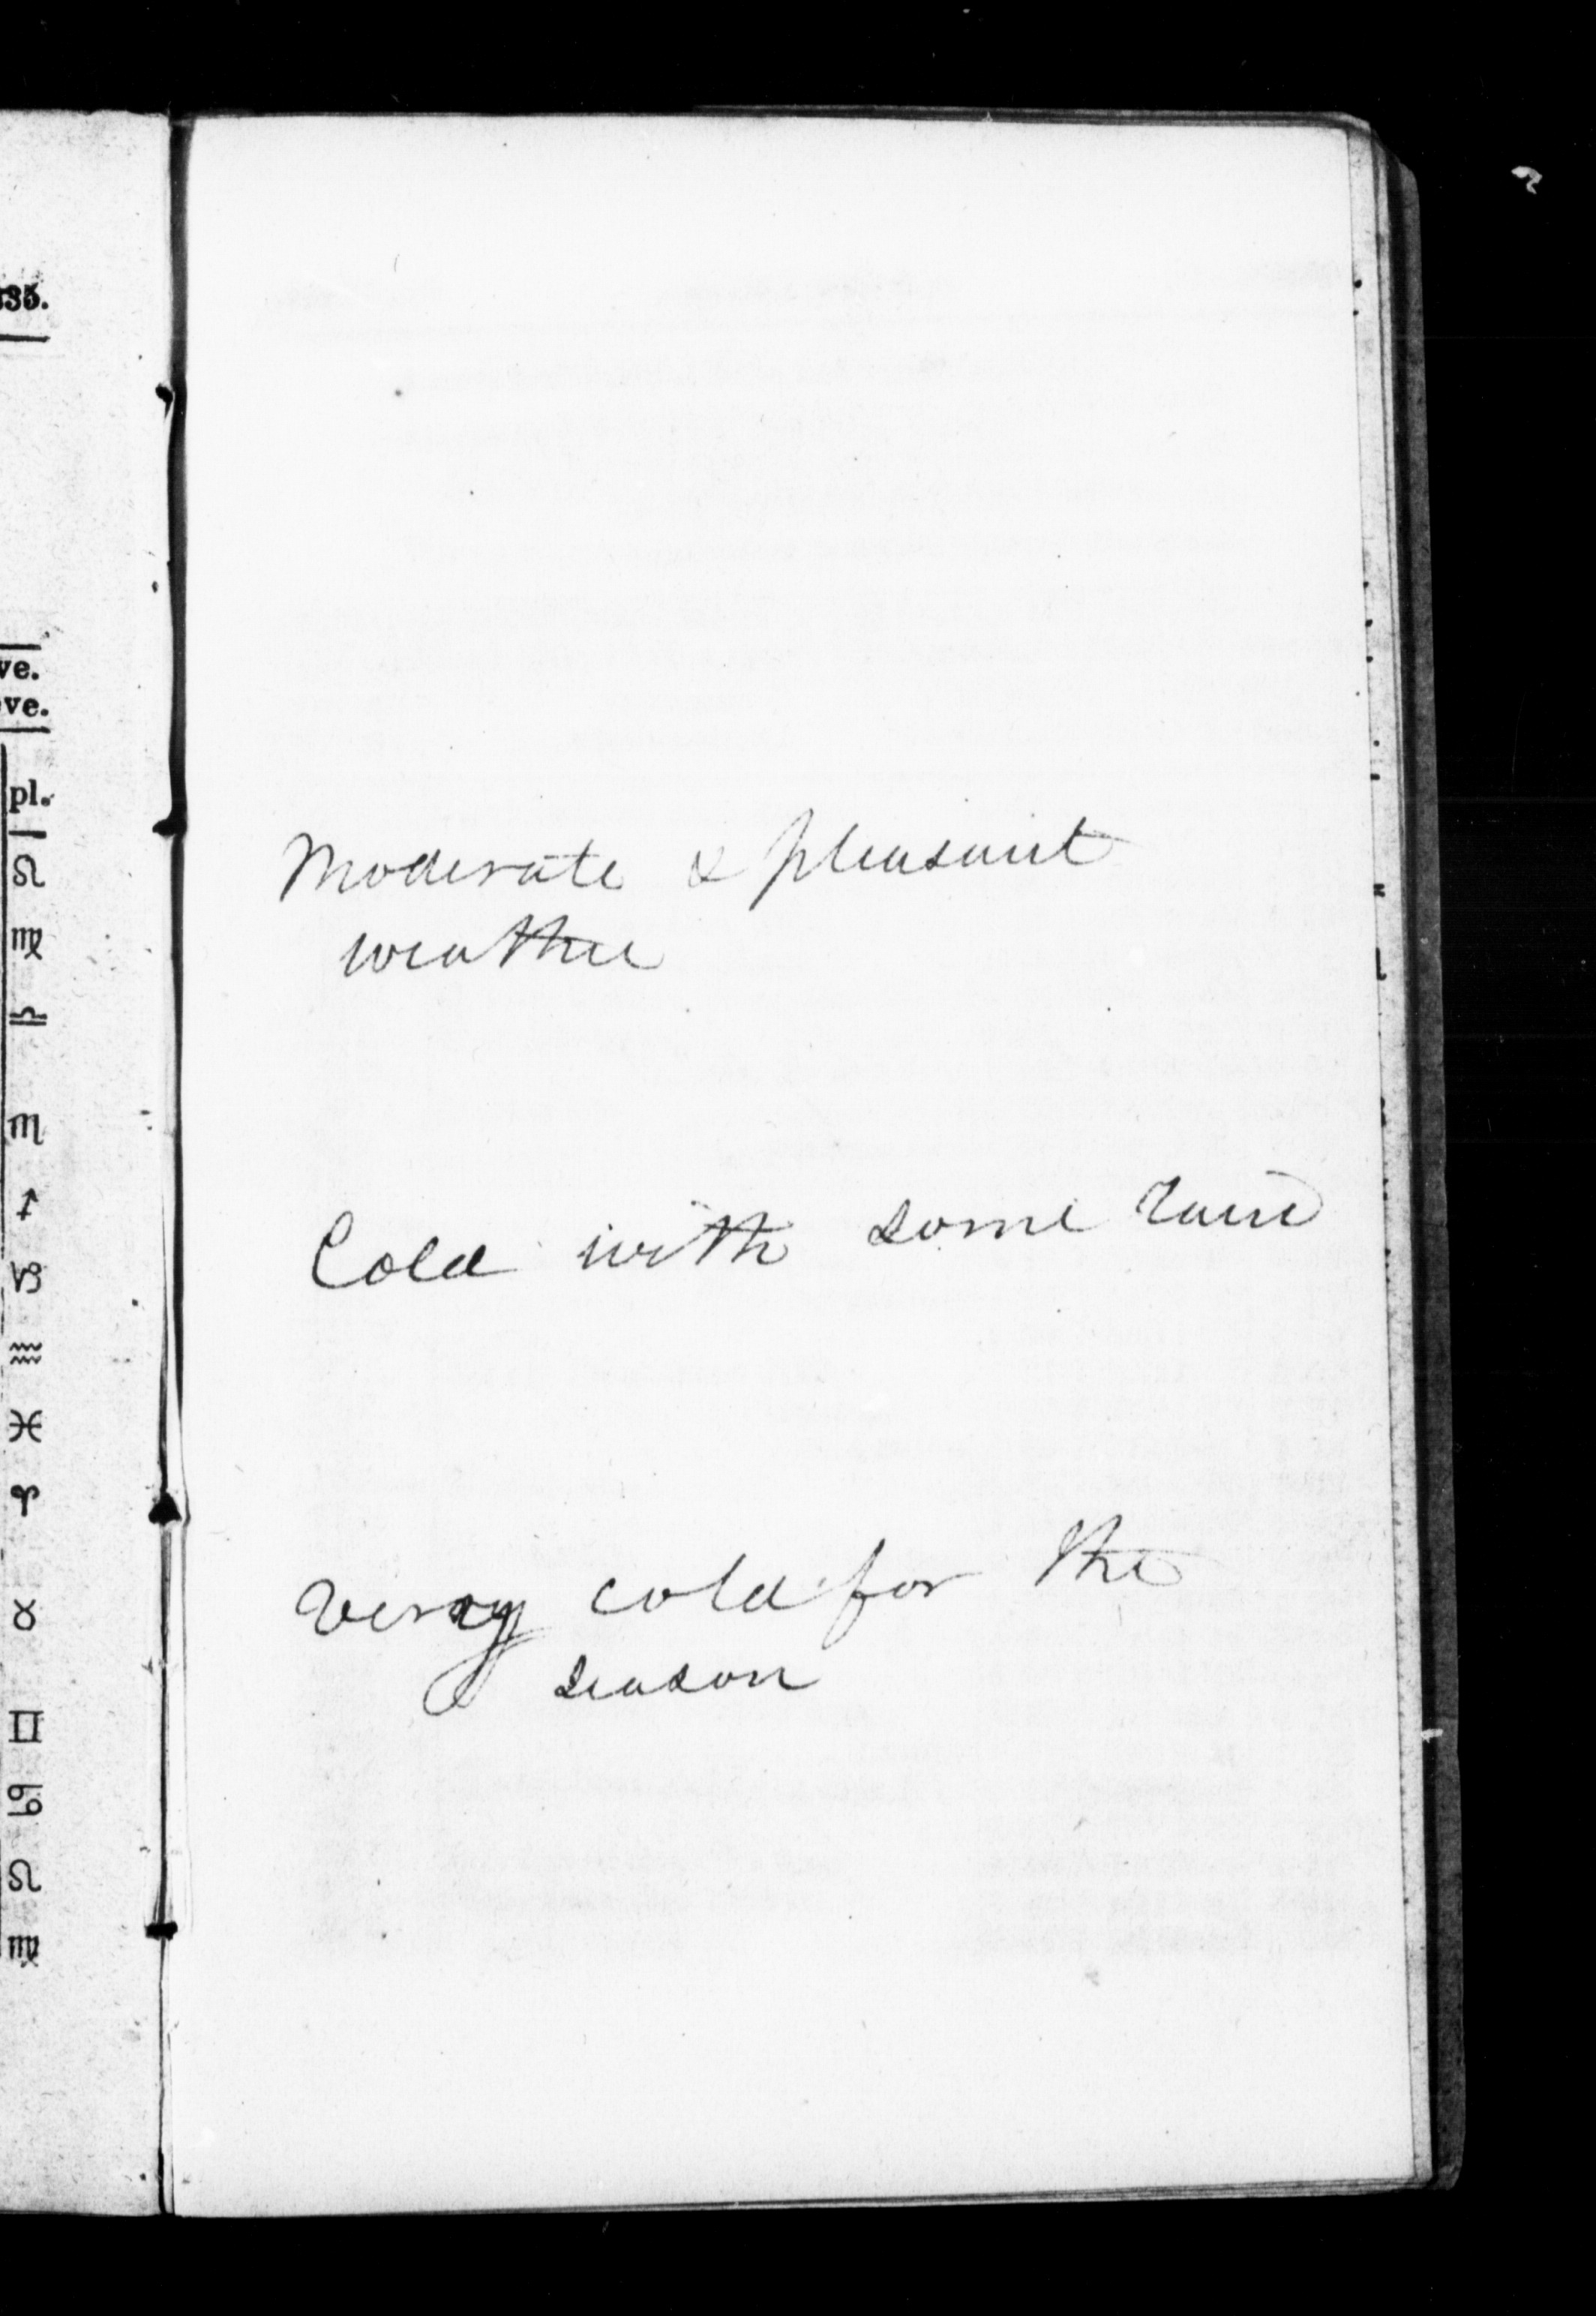 35.
ve.
ve.
pl.
♌
♍
♎
♏
♐
♑
♒
♓
♈
♉
♊
♋
♌
♍
Moderate & pleasant
weather
Cold with some rain
very cold for the
season